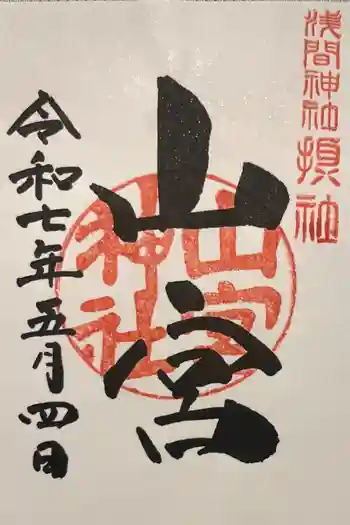 浅間神社摂社
山宮
山宮神社
令和七年五月四日